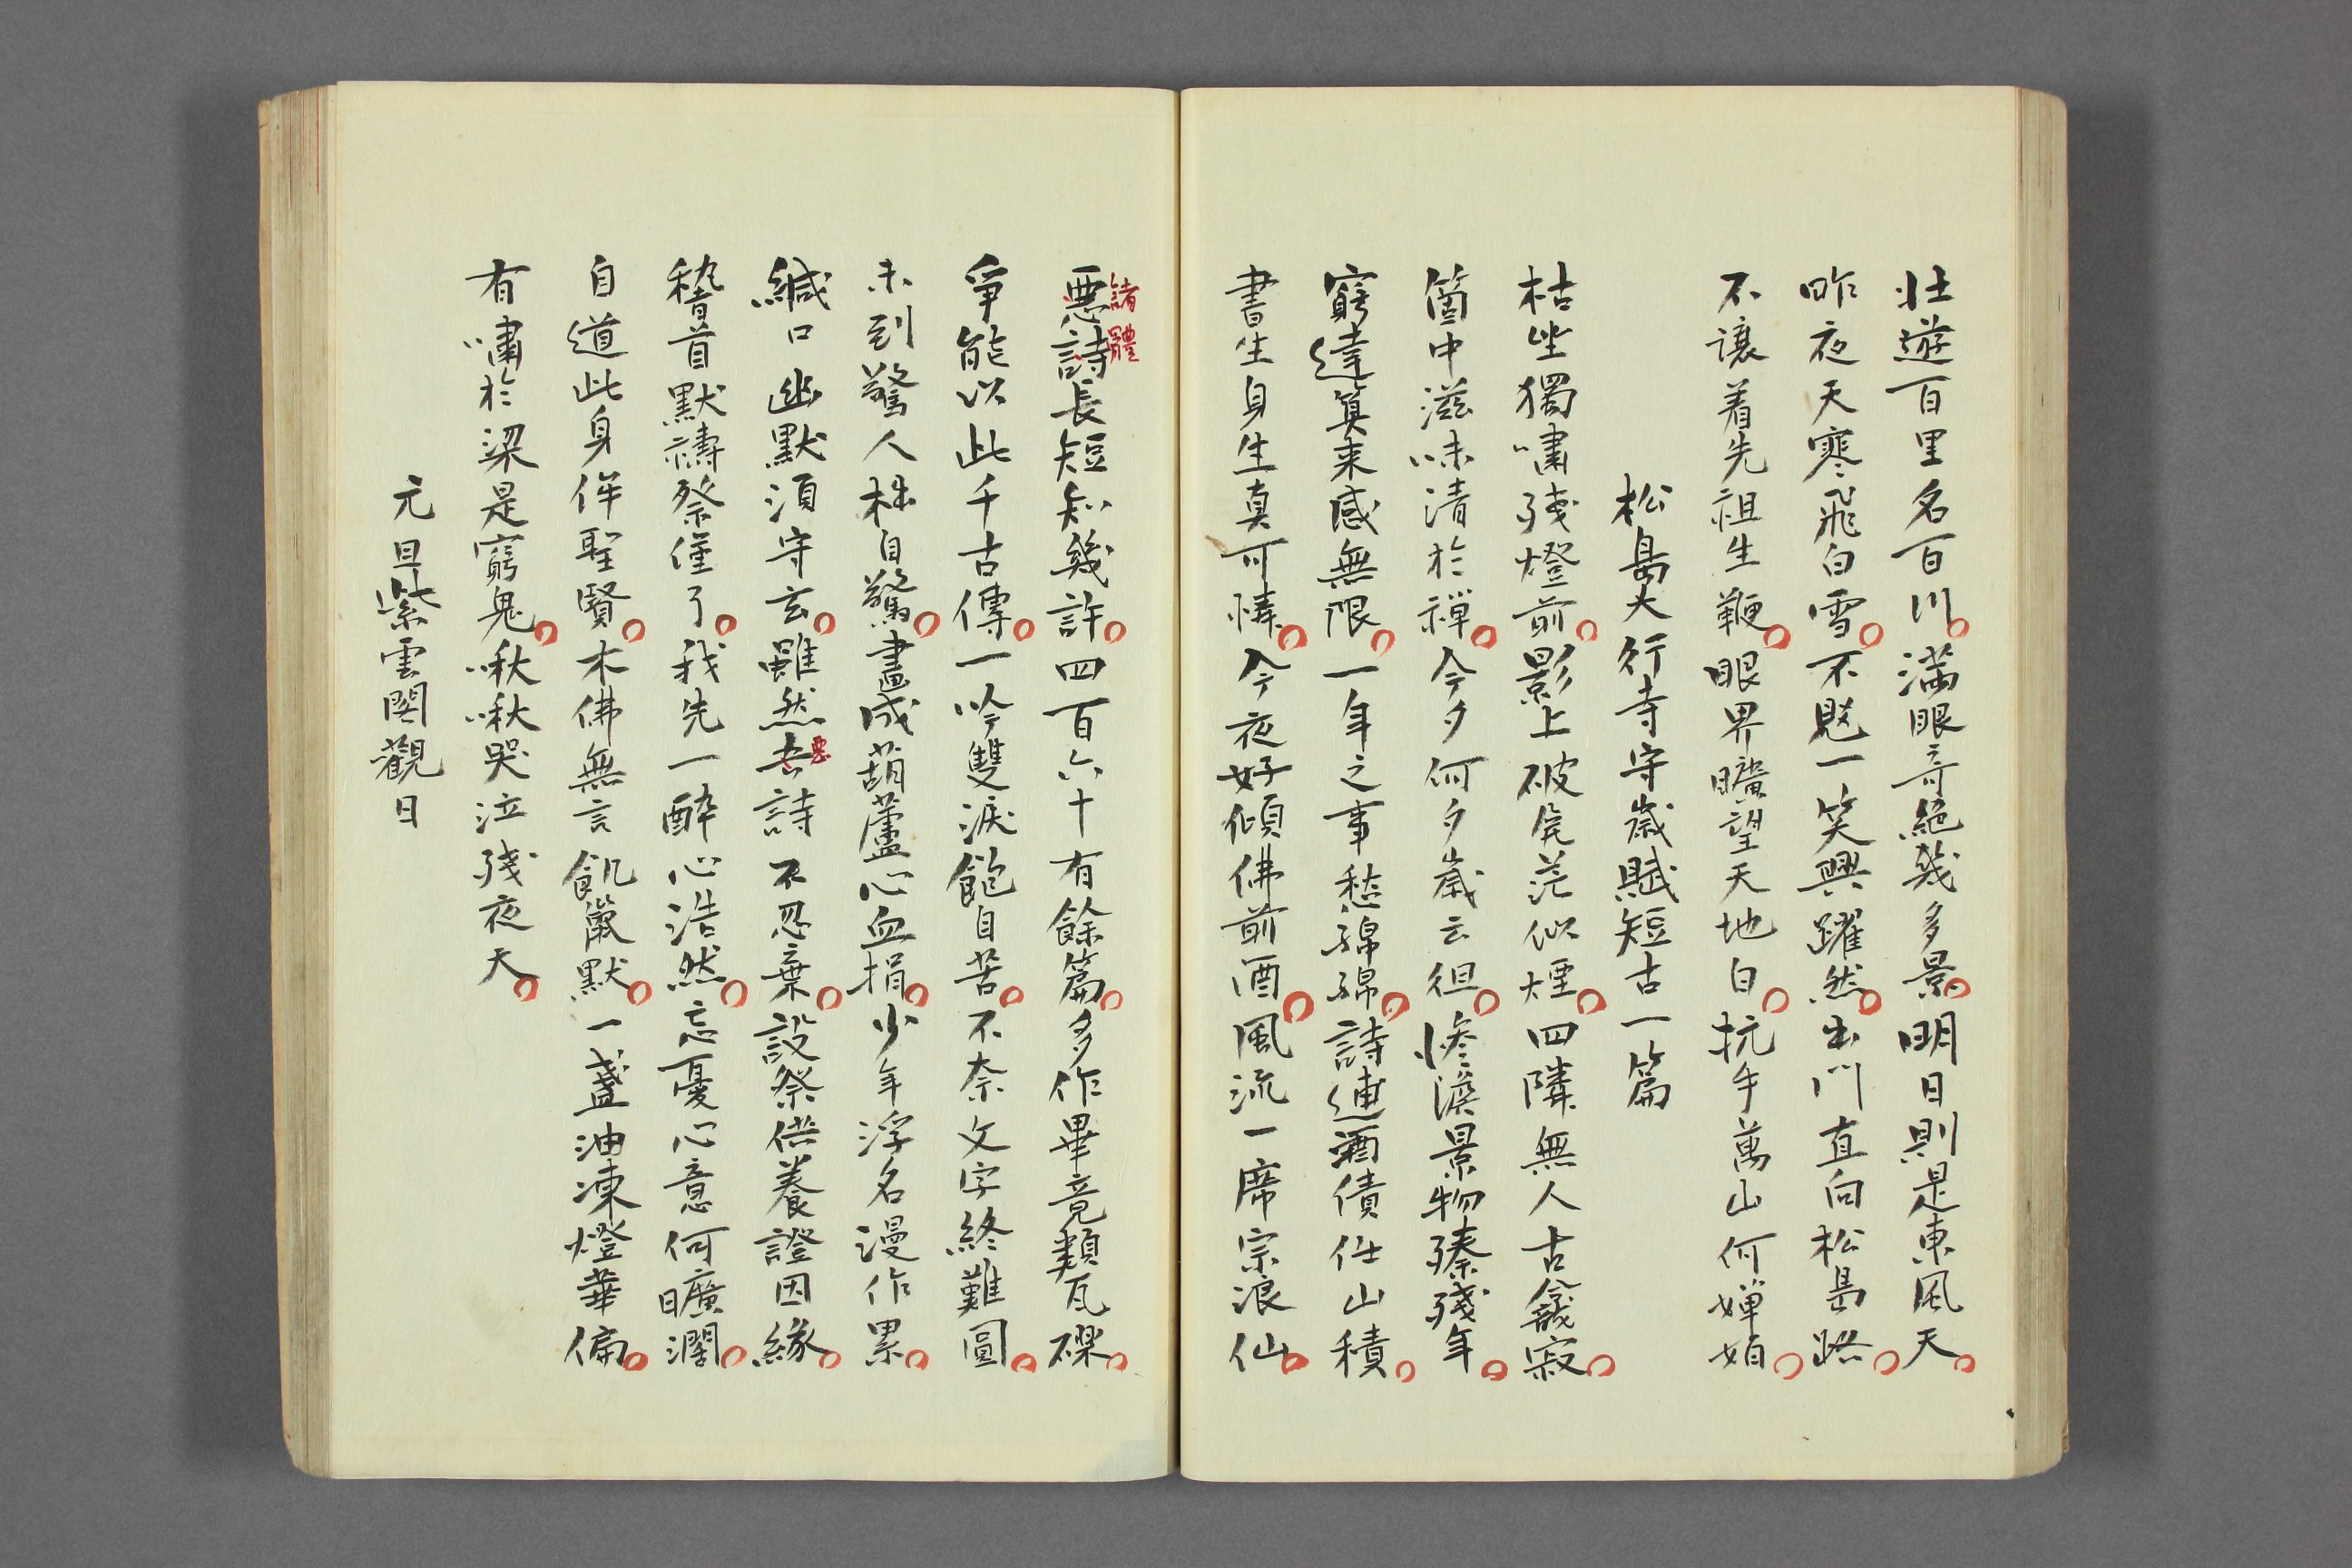 壮遊百里名百川。満眼奇絶幾多景。明日則是東風天。
昨夜天寒飛白雪。不覚一笑興躍然。出門直向松島路。
不譲着先祖生鞭。眼界曠望天地白。抗手萬山何嬋娟。
松島大行寺守歳賦短古一篇
枯坐獨嘯残燈前。影上破凭茫似煙。四隣無人古龕寂。
箇中滋味清於禅。今夕何夕歳云徂。惨澹景物臻残年。
窮達算来感無限。一年之事愁綿綿。詩逋酒債任山積。
書生身生真可憐。今夜好傾佛前酒。風流一席宗浪仙。
悪詩長短知幾許。四百六十有餘篇。多作畢竟類瓦礫。
諸體
爭能以此千古傳。一吟雙涙飽自苦。不奈文字終難圓。
未到驚人拙自驚。畫成葫蘆心血捐。少年浮名漫作累。
緘口幽默須守玄。雖然吾詩不忍棄。設祭供養證因縁。
悪
稽首默禱祭僅了。我先一酔心浩然。忘憂心意何曠濶。
自道此身侔聖賢。木佛無言飢鼠默。一盞油凍燈華偏。
有嘯於梁是窮鬼。啾啾哭泣残夜天。
元旦紫雲閣觀日